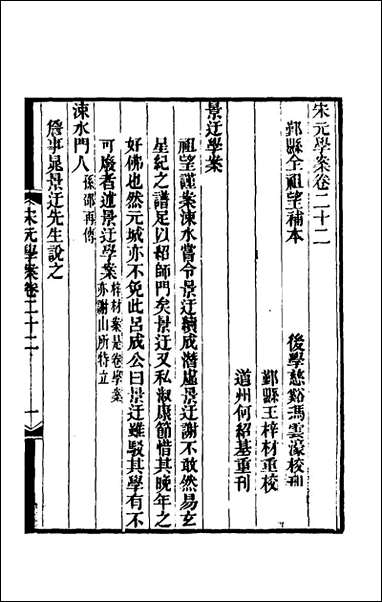 宋元學案卷二十二
鄞縣全祖望補本
後學慈谿馮雲濠校刊
鄞縣王梓材重校
道州何紹基重刊
景迂學案
祖望謹案涑水嘗令景迂續成潛虛景迂謝不敢然易玄
星紀之譜足以紹師門矣景迂又私淑康節惜其晚年之
好佛也然元城亦不免此呂成公曰景迂雖駁其學有不
可廢者述景迂學案梓材案是卷學案亦謝山所特立
涑水門人孫邵再傳
詹事晁景迂先生說之
宋元學案卷二十二 一